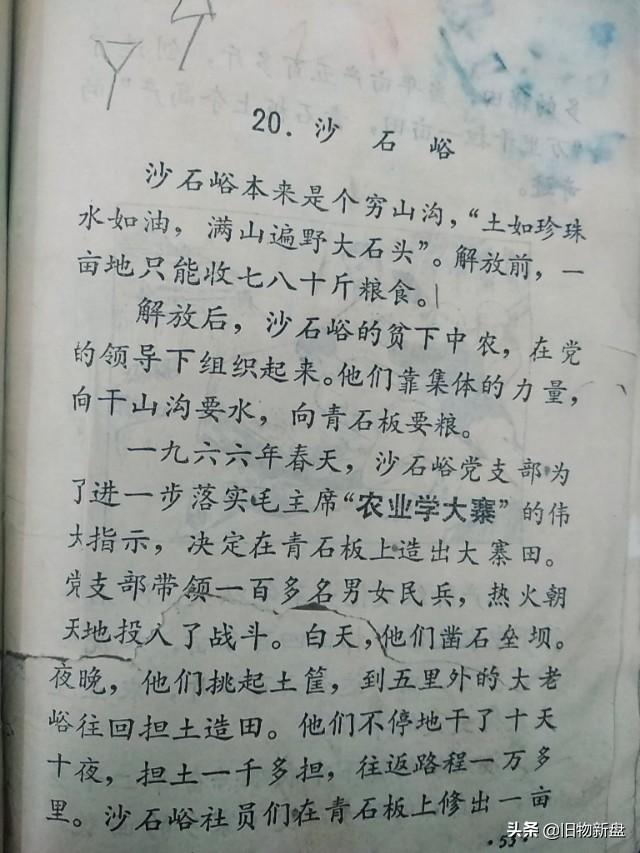 20. 沙石峪
沙石峪本来是个穷山沟，“土如珍珠
水如油，满山遍野大石头”。解放前，一
亩地只能收七八十斤粮食。
解放后，沙石峪的贫下中农，在党
的领导下组织起来。他们靠集体的力量，
向干山沟要水，向青石板要粮。
一九六六年春天，沙石峪党支部为
了进一步落实毛主席“农业学大寨”的伟
大指示，决定在青石板上造出大寨田。
党支部带领一百多名男女民兵，热火朝
天地投入了战斗。白天，他们凿石垒坝。
夜晚，他们挑起土筐，到五里外的大老
峪往回担土造田。他们不停地干了十天
十夜，担土一千多担，往返路程一万多
里。沙石峪社员们在青石板上修出一亩
·53·
头条 @旧物新盘